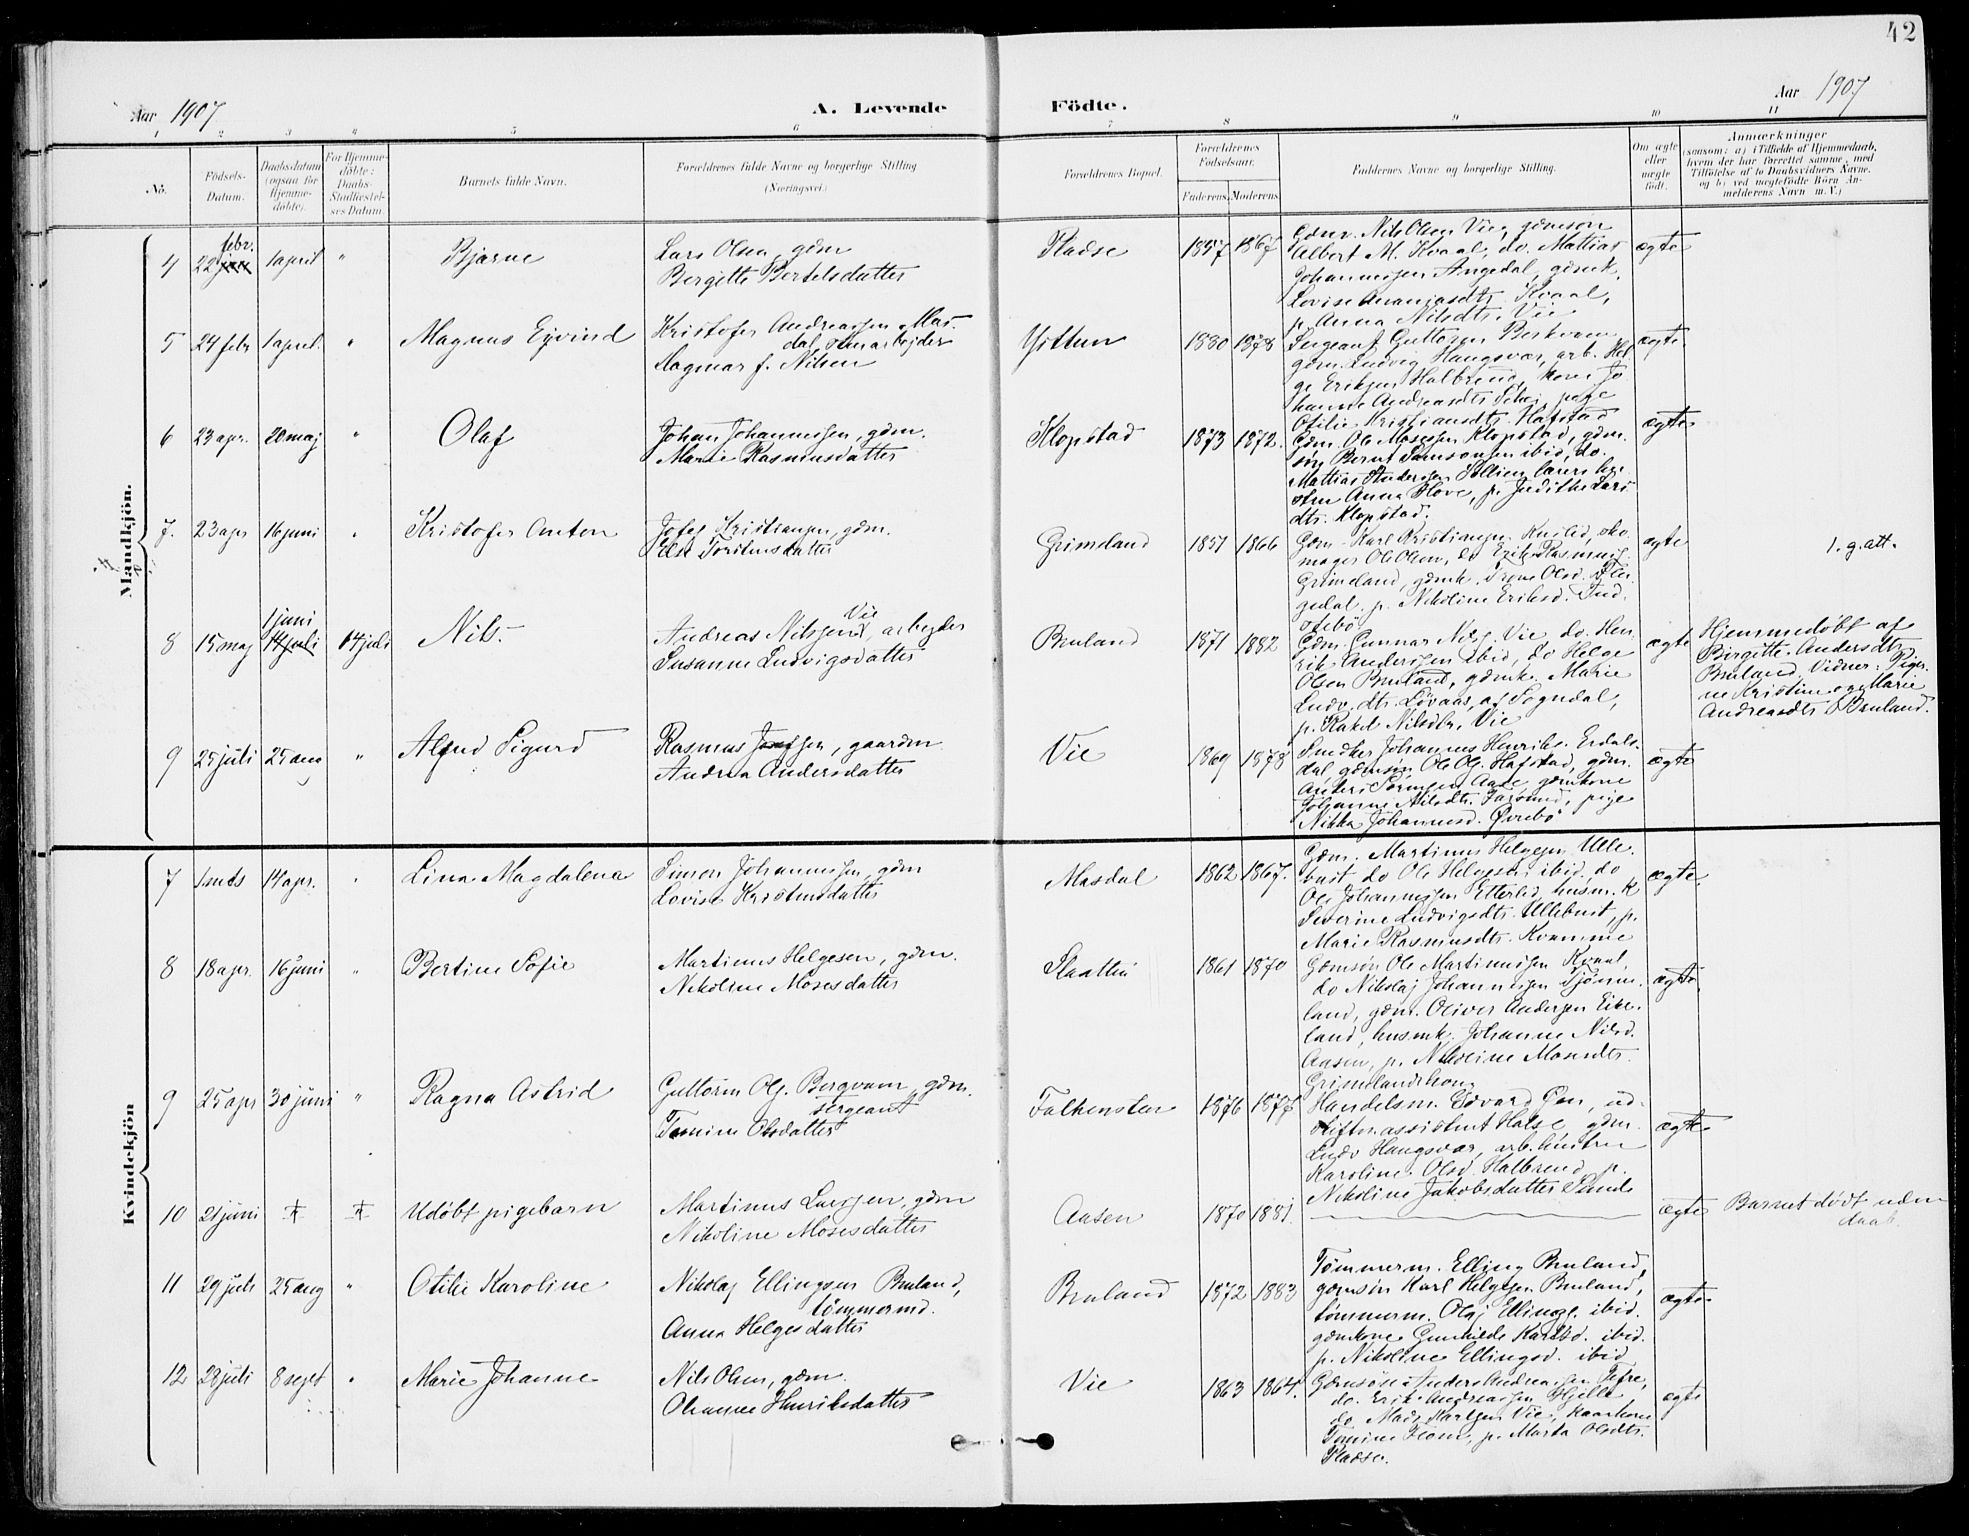 42
Aar 1907
A. Levende Födte.
Aar 1907
1 2 3 4 5 6 7 8 9 10 11
No.
Födsels-Datum.
Daabsdatum (ogsaa for Hjemme-döbte).
For Hjemme-döbte: Daabs-Stadfæstel-ses Datum.
Barnets fulde Navn.
Forældrenes fulde Navne og borgerlige Stilling (Næringsvei.)
Forældrenes Bopæl.
Forældrenes Fødselsaar.
Faderens. Moderens.
Faddernes Navne og borgerlige Stilling.
Om ægte eller uægte født.
Anmærkninger
(saasom: a) i Tilfælde af Hjemmedaab,
hvem der har forrettet samme, med
Tilföielse af to Daabsvidners Navne.
og b) ved uægtefödte Börn An-
melderens Navn m. V.)
Mandkjön.
4 22 febr. 1 april " Bjarne
Lars Olsen, gdm
Bergitte Bertelsdatter
Pladse 1857 1867
Gdmr. Nils Olsen Vie, gdmsøn
Albert M. Kvaal, do. Mattias
Johannessen Angedal, gdmk.
Lovise Ananiasdtr. Kvaal,
p. Anna Nilsdtr. Vie
ægte
5 24 febr 1 april. " Magnus Eivind
Kristofer Andreassen Mas-
dal,
Dagmar f. Nilsen
1880 1878
Sergeant Guttorm Berkvam
gdm. Ludvig Haugsvær, arb. Hel-
ge Eriksen Halbrend, kone Jo-
hanne Andreasdtr. pige
Otilie Kristiansdtr. Hafstad
ægte
6 23 apr. 20 maj " Olaf
Johan Johannessen, gdm.
Marie Rasmusdatter
Klopstad 1873 1872.
Gdm. Ole Mosessen Klopstad, gdm.
søn Bernt Samsonsen ibid, do.
Mattias Andersen
Anna Hove, p. Judithe Lars-
dtr. Klopstad.
ægte
7. 23 apr 16 juni " Kristofer Anton
Josef Kristiansen, gdm.
Else Torstensdatter
Grimeland 1851 1866
Gdm. Karl Kristiansen sko-
mager Ole Olsen, do Erik Rasmuss.
Grimeland, gdmk.
p. Nikoline Eriksd.
ægte
1. g. att.
8 15 maj 1 juni 14 juli Nils.
Andreas Nilssen Vie, arbejder
Susanne Ludvigsdatter
Bruland 1871 1882
Gdm. Gunnar Nils. Vie do. Hen-
rik Anderssen ibid, do Helge
Olsen Bruland, gdmk. Marie
Ludv. dtr. Løvaas, af Sogndal,
p. Rakel Nilsdtr. Vie
ægte
Hjemmedøbt af
Birgitte Andersdtr.
Bruland. Vidner: Piger-
ne Kristine og Marie
Andreasdtr. Bruland.
9 25 juli 25 aug " Alfred Sigurd
Rasmus Josefsen, gaardm
Andrea Andersdatter
Vie 1869 1878
Snedker Johannes Henriks. Erdals-
dal, gdmsøn Ole Ols. Hafstad, gdm.
Anders Aase, gdmkone
Johanne Nilsdtr. pige
Nikka Johannesd. Øvrebø
ægte
Kvindekjön
7 1 mts 14 apr. " Lina Magdalena
Simon Johannessen, gdm
Lovise Kristensdatter
Masdal 1862 1867.
Gdm. Martinus Helgesen Ulle-
bust do Ole Helgesen ibid, do
Ole Johannessen Etterlid, husm. k
Severine Ludvigsdtr. Ullebust, p.
Marie Rasmusdtr. Kvamme
ægte.
8 18 apr. 16 juni " Bertine Sofie
Martinus Helgesen, gdm.
Nikoline Mosesdatter
Slaatten 1861 1870
Gdmsøn Ole Martinussen Kvaal,
do Nikolaj Johannessen Tjønne-
land, gdm. Oliver Andersen Eike-
land, husmk. Johanne Nilsd.
Aasen, p. Nikoline Monsdtr.
ægte.
9 25 apr 30 juni " Ragna Astrid
Guttorm Ols. Bergvam, gdm.
sergeant
Tomine Olsdatter
Falkensten 1876 1877
Handelsm. Edvard Gjen, ud-
skiftnassistent Halse, gdm.
Ludv Haugsvær, arb. hustru
Karoline Olsd. Halbrend, p.
Nikoline Jakobsdatter Sunde
ægte
10 21 juni Udøbt pigebarn
Martinus Larssen, gdm
Nikoline Mosesdatter
Aasen 1870 1881.
ægte Barnet dødt uden
daab.
11 29 juli 25 aug " Otilie Karoline
Nikolaj Ellingsen Bruland,
tømmermd.
Anna Helgesdatter
Bruland 1872 1883
Tømmerm. Elling Bruland,
gdmsøn Karl Helgesen Bruland,
tømmerm. Olaj Ellings. ibid.
gdmkone Gunhilde Karlsd. ibid.
p. Nikoline Ellingsd. ibid
ægte
12 28 juli 8 sept " Marie Johanne
Nils Olsen, gdm.
Olianne Henriksdatter
Vie 1863 1864.
Gdmsøn Anders Andreassen Tefre,
do. Erik Andreassen Hjelle,
do Mads Karlsen Vie, kaarkone
Tomine p. Marta Olsdtr.
Pladse.
ægte